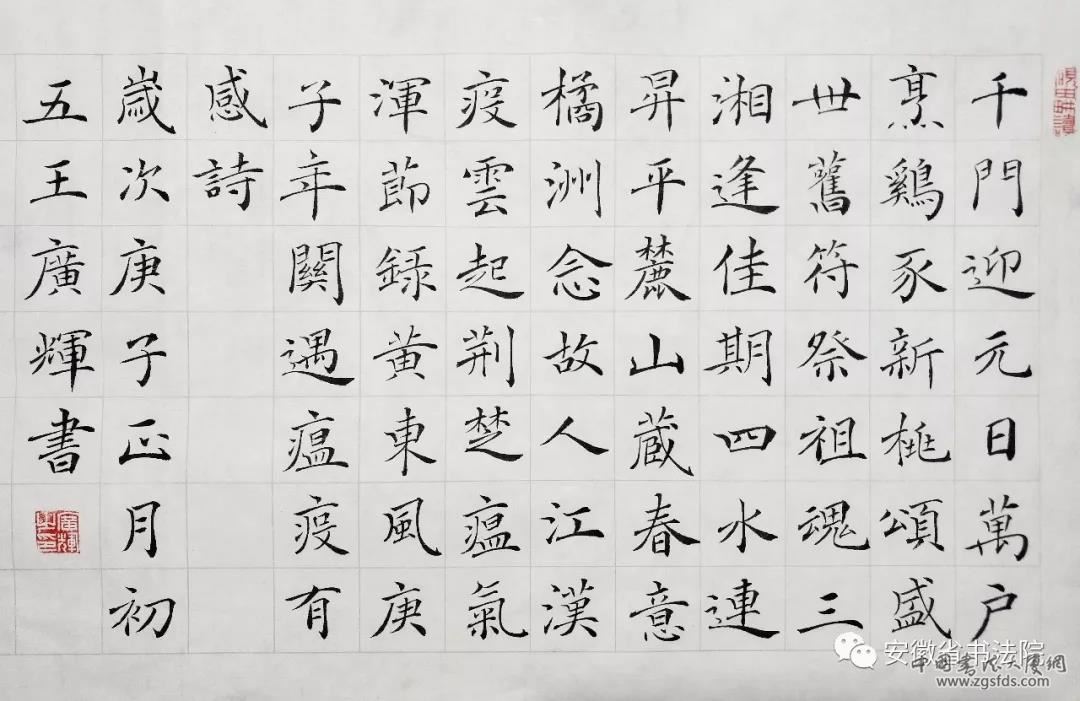 千門迎元日萬户
烹鷄豕新桃頌盛
世舊符祭祖魂三
湘逢佳期四水連
昇平麓山藏春意
橘洲念故人江漢
疫雲起荆楚瘟氣
渾節録黄東風庚
子年關遇瘟疫有
感詩
歲次庚子正月初
五王廣輝書
安徽省书法院
中國書法大廈網
www.zgsfds.com